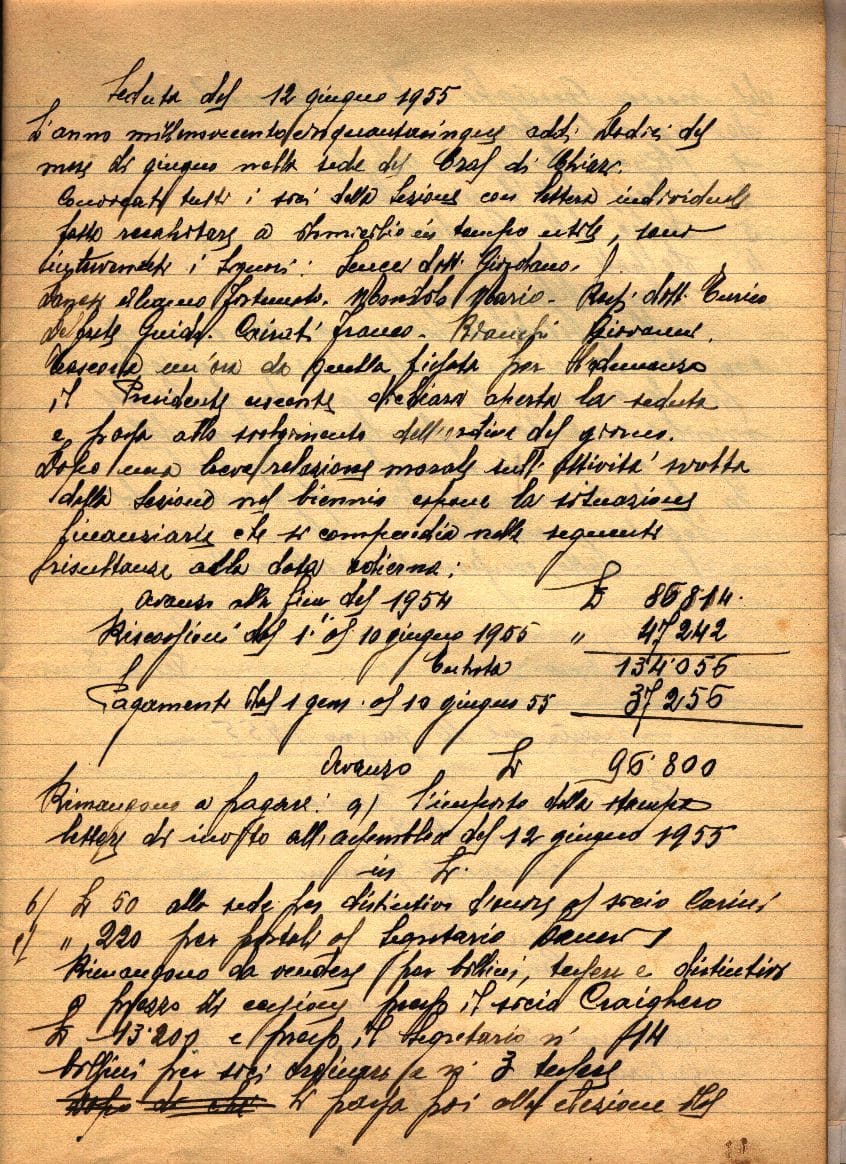 Seduta del 12 giugno 1955
L'anno millenovecentocinquantacinque addì Dodici del
mese di giugno nella sede del Cral di Chiari.
Convocati tutti i soci della Sezione con lettera individuale
fatta recapitare a domicilio in tempo utile, sono
intervenuti i Signori: dott. Giordano.
Fortunato. Mario - dott. Enrico
Guido. Cairati Franco - Bianchi Giovanni.
Trascorsa un'ora da quella fissata per l'Adunanza
il Presidente uscente dichiara aperta la seduta
e passa allo svolgimento dell'ordine del giorno.
Dopo una breve relazione morale sull'attività svolta
dalla Sezione nel biennio espone la situazione
finanziaria che si compendia nelle seguenti
risultanze alla data odierna:
Avanzo alla fine del 1954 £ 86.814.
Riscossioni dal 1. al 10 giugno 1955 " 47.242
Entrata 134.056
Pagamenti dal 1 genn. al 10 giugno 55 37.256
Avanzo £ 96.800
Rimangono a pagare: a) l'importo della stampa
lettere di invito all'assemblea del 12 giugno 1955
in £.
b) £ 50 alla sede per distintivo d'onore al socio Carini
c) " 220 per postali al Segretario
Rimangono da vendere per bollini, tessere e distintivi
a prezzo di cessione presso il socio Craighero
£ 13.200 e presso il Segretario n° 14
bollini per soci ordinari e n° 3 tessere
Dopo di che Si passa poi alla elezione del